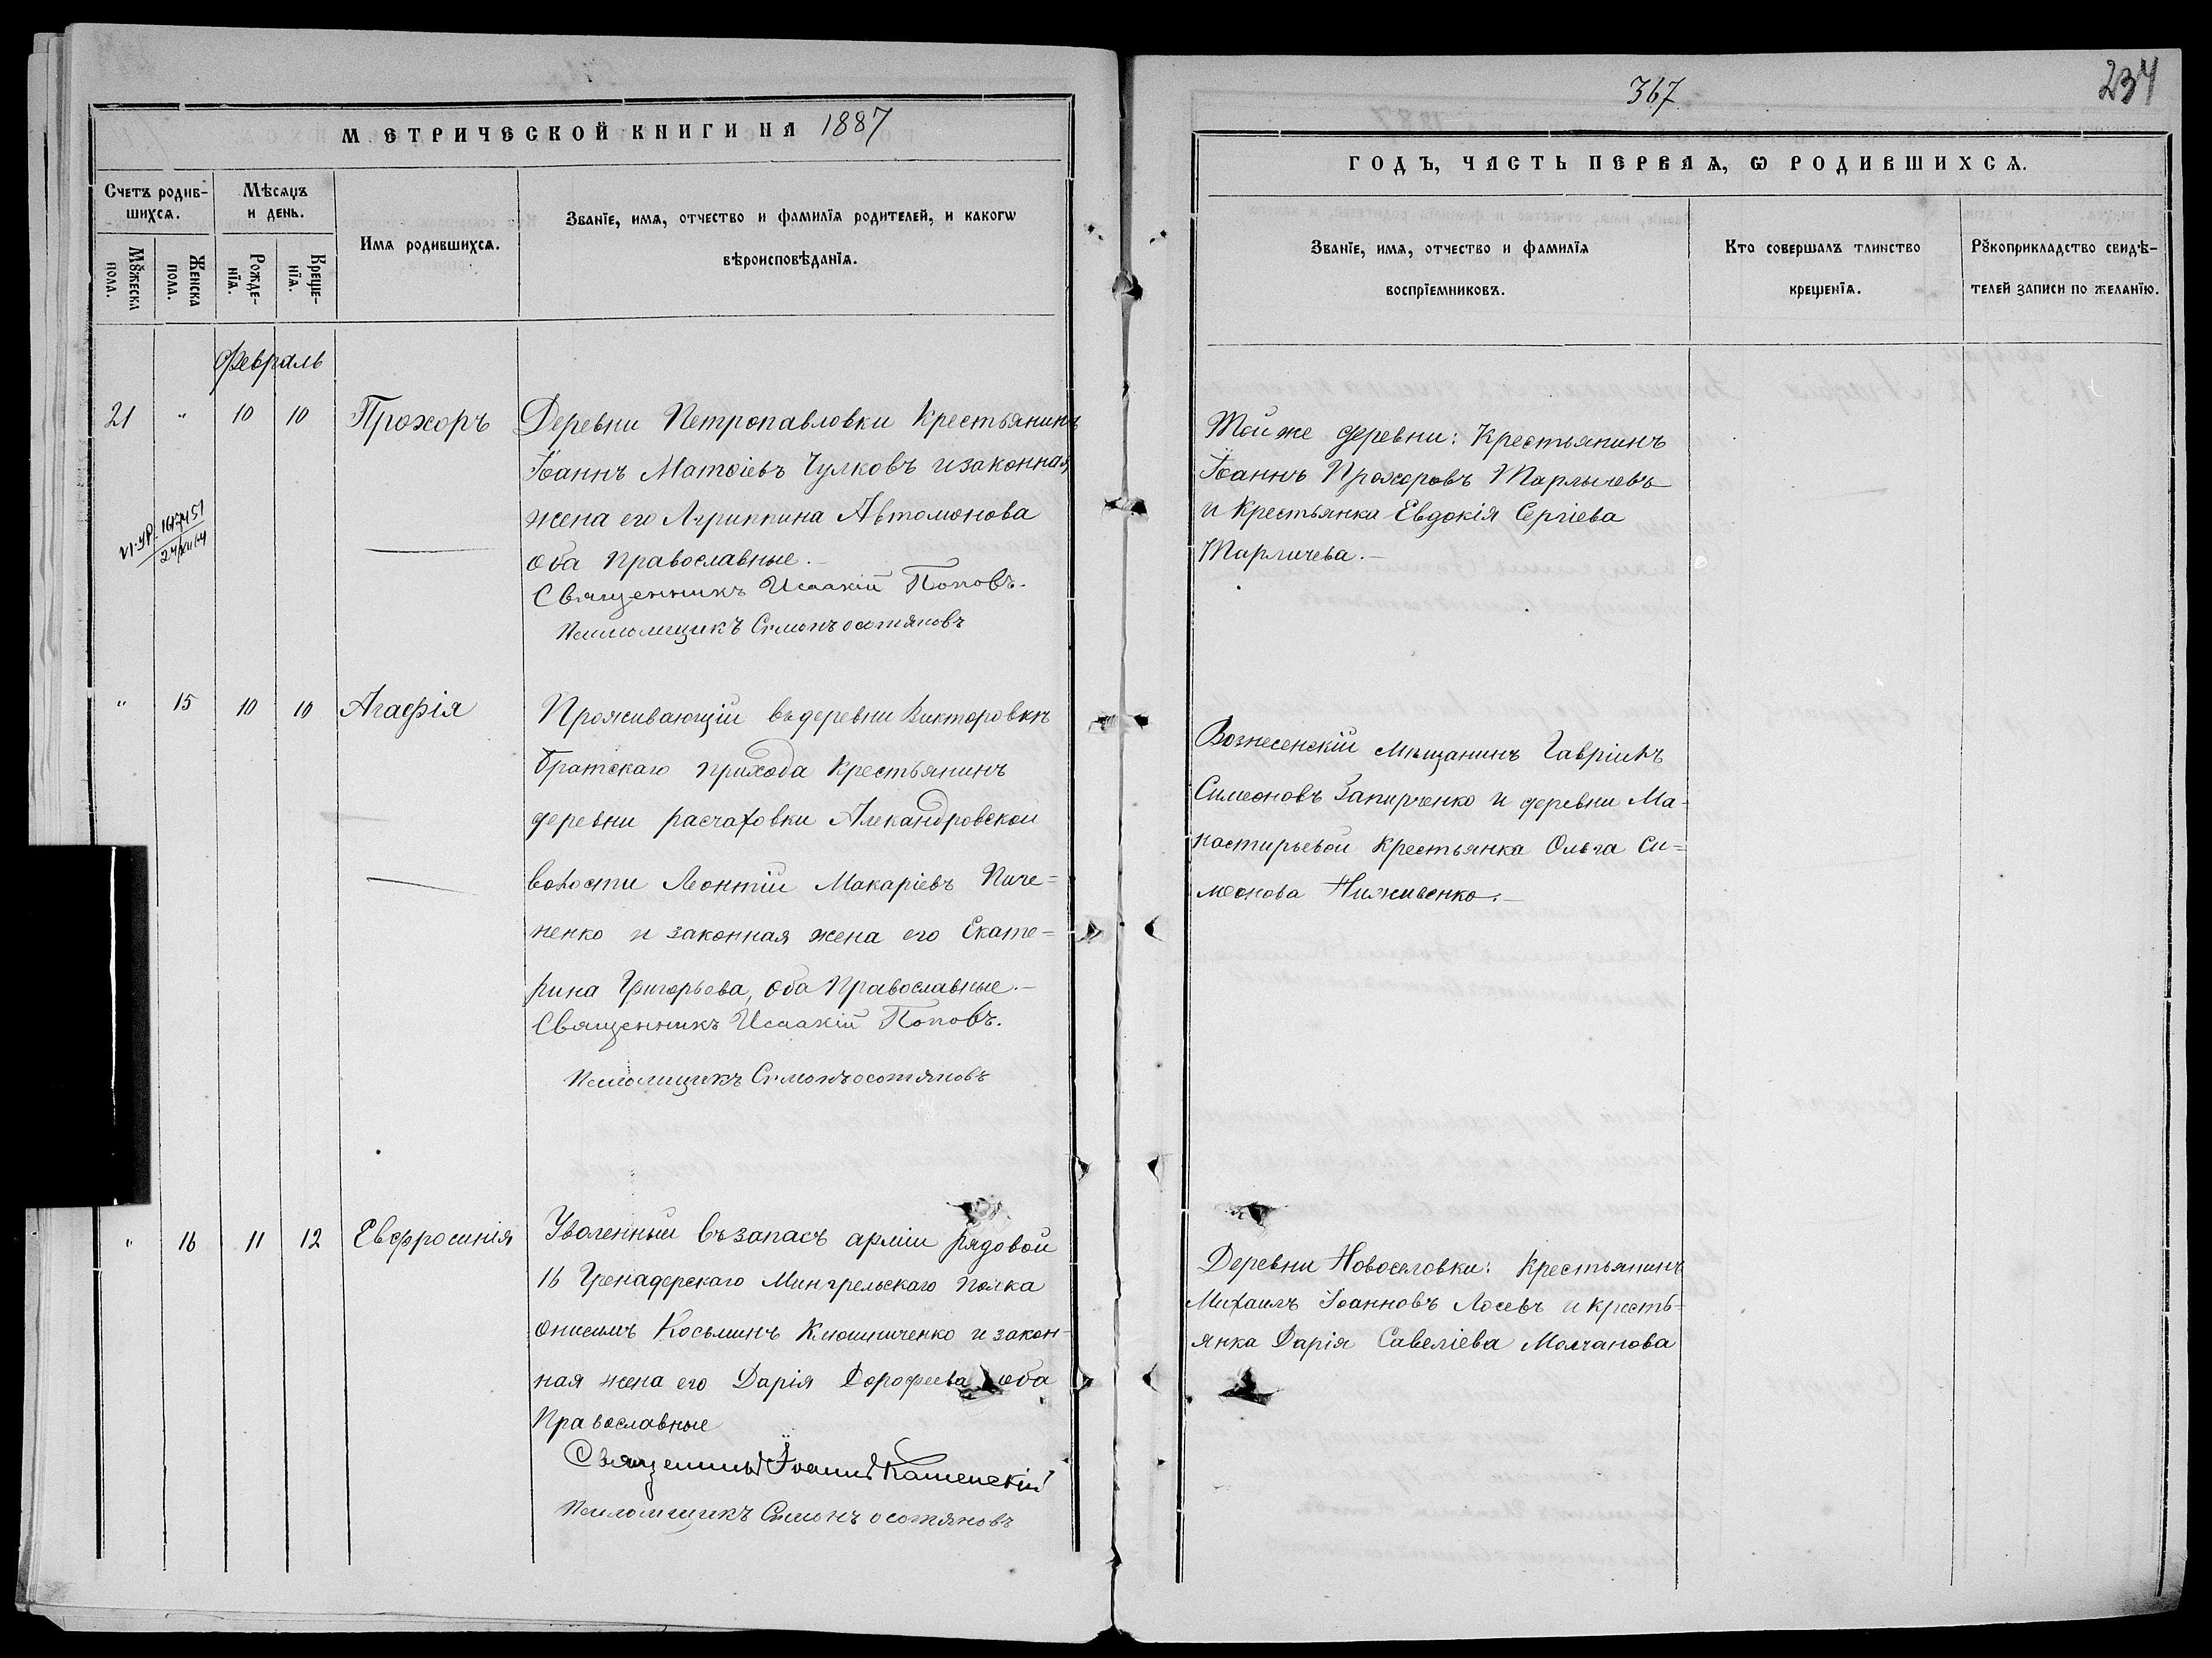 МЕТРИЧЕСКОЙ КНИГИ НА 1887
Счетъ родив-
шихся.
Мѣсяцъ
и день.
Имя родившихся.
Званїе, имя, отчество и фамилїя родителей, и какогѡ
вѣроисповѣданїя.
Мꙋжеска
пола.
Женска
пола.
Рожде-
нїя.
Креще-
нїя.
Февраль
21 " 10 10 Прохоръ Деревни Петропавловки Крестьянинъ
Іоаннъ Матѳіевъ Чулковъ и законная
жена его Агриппина Автомонова
оба православные.
Священникъ Исаакій Поповъ.
Псаломщикъ Симонъ
" 15 10 10 Агафія Проживающій въ деревни Викторовкѣ
братскаго прихода Крестьянинъ
деревни расчаховки Алекандровской
волости Леонтій Макаріевъ Пиче=
ненко и законная жена его Екате=
рина Григорьева, оба Православные.
Священникъ Исаакій Поповъ.
Псаломщикъ Симонъ
" 16 11 12 Евфросинія Уволенный въ запасъ арміи рядовой
16 Гренадерскаго Мингрельскаго полка
Онисимъ Косьминъ Клюшниченко и закон-
ная жена его Дарія Дорофеева оба
Православные
Священникъ Іоаннъ Каменскій
Псаломщикъ Симонъ
367
234
ГОДЪ, ЧАСТЬ ПЕРВАЯ, Ѡ РОДИВШИХСЯ.
Званїе, имя, отчество и фамилїя
воспрїемниковъ.
Кто совершалъ таинство
крещенїя.
Рꙋкоприкладство свидѣ-
телей записи по желанїю.
Той же деревни: Крестьянинъ
Іоаннъ Прохоровъ Тарлычевъ
и Крестьянка Евдокія Сергіева
Тарличева.
Вознесенскій Мѣщанинъ Гавріилъ
Симеоновъ Запирченко и деревни Ма=
настирьевой Крестьянка Ольга Си=
меонова Ниживенко.
Деревни Новоселовки: Крестьянинъ
Михаилъ Іоанновъ Лосевъ и кресть=
янка Дарія Савеліева Молчанова